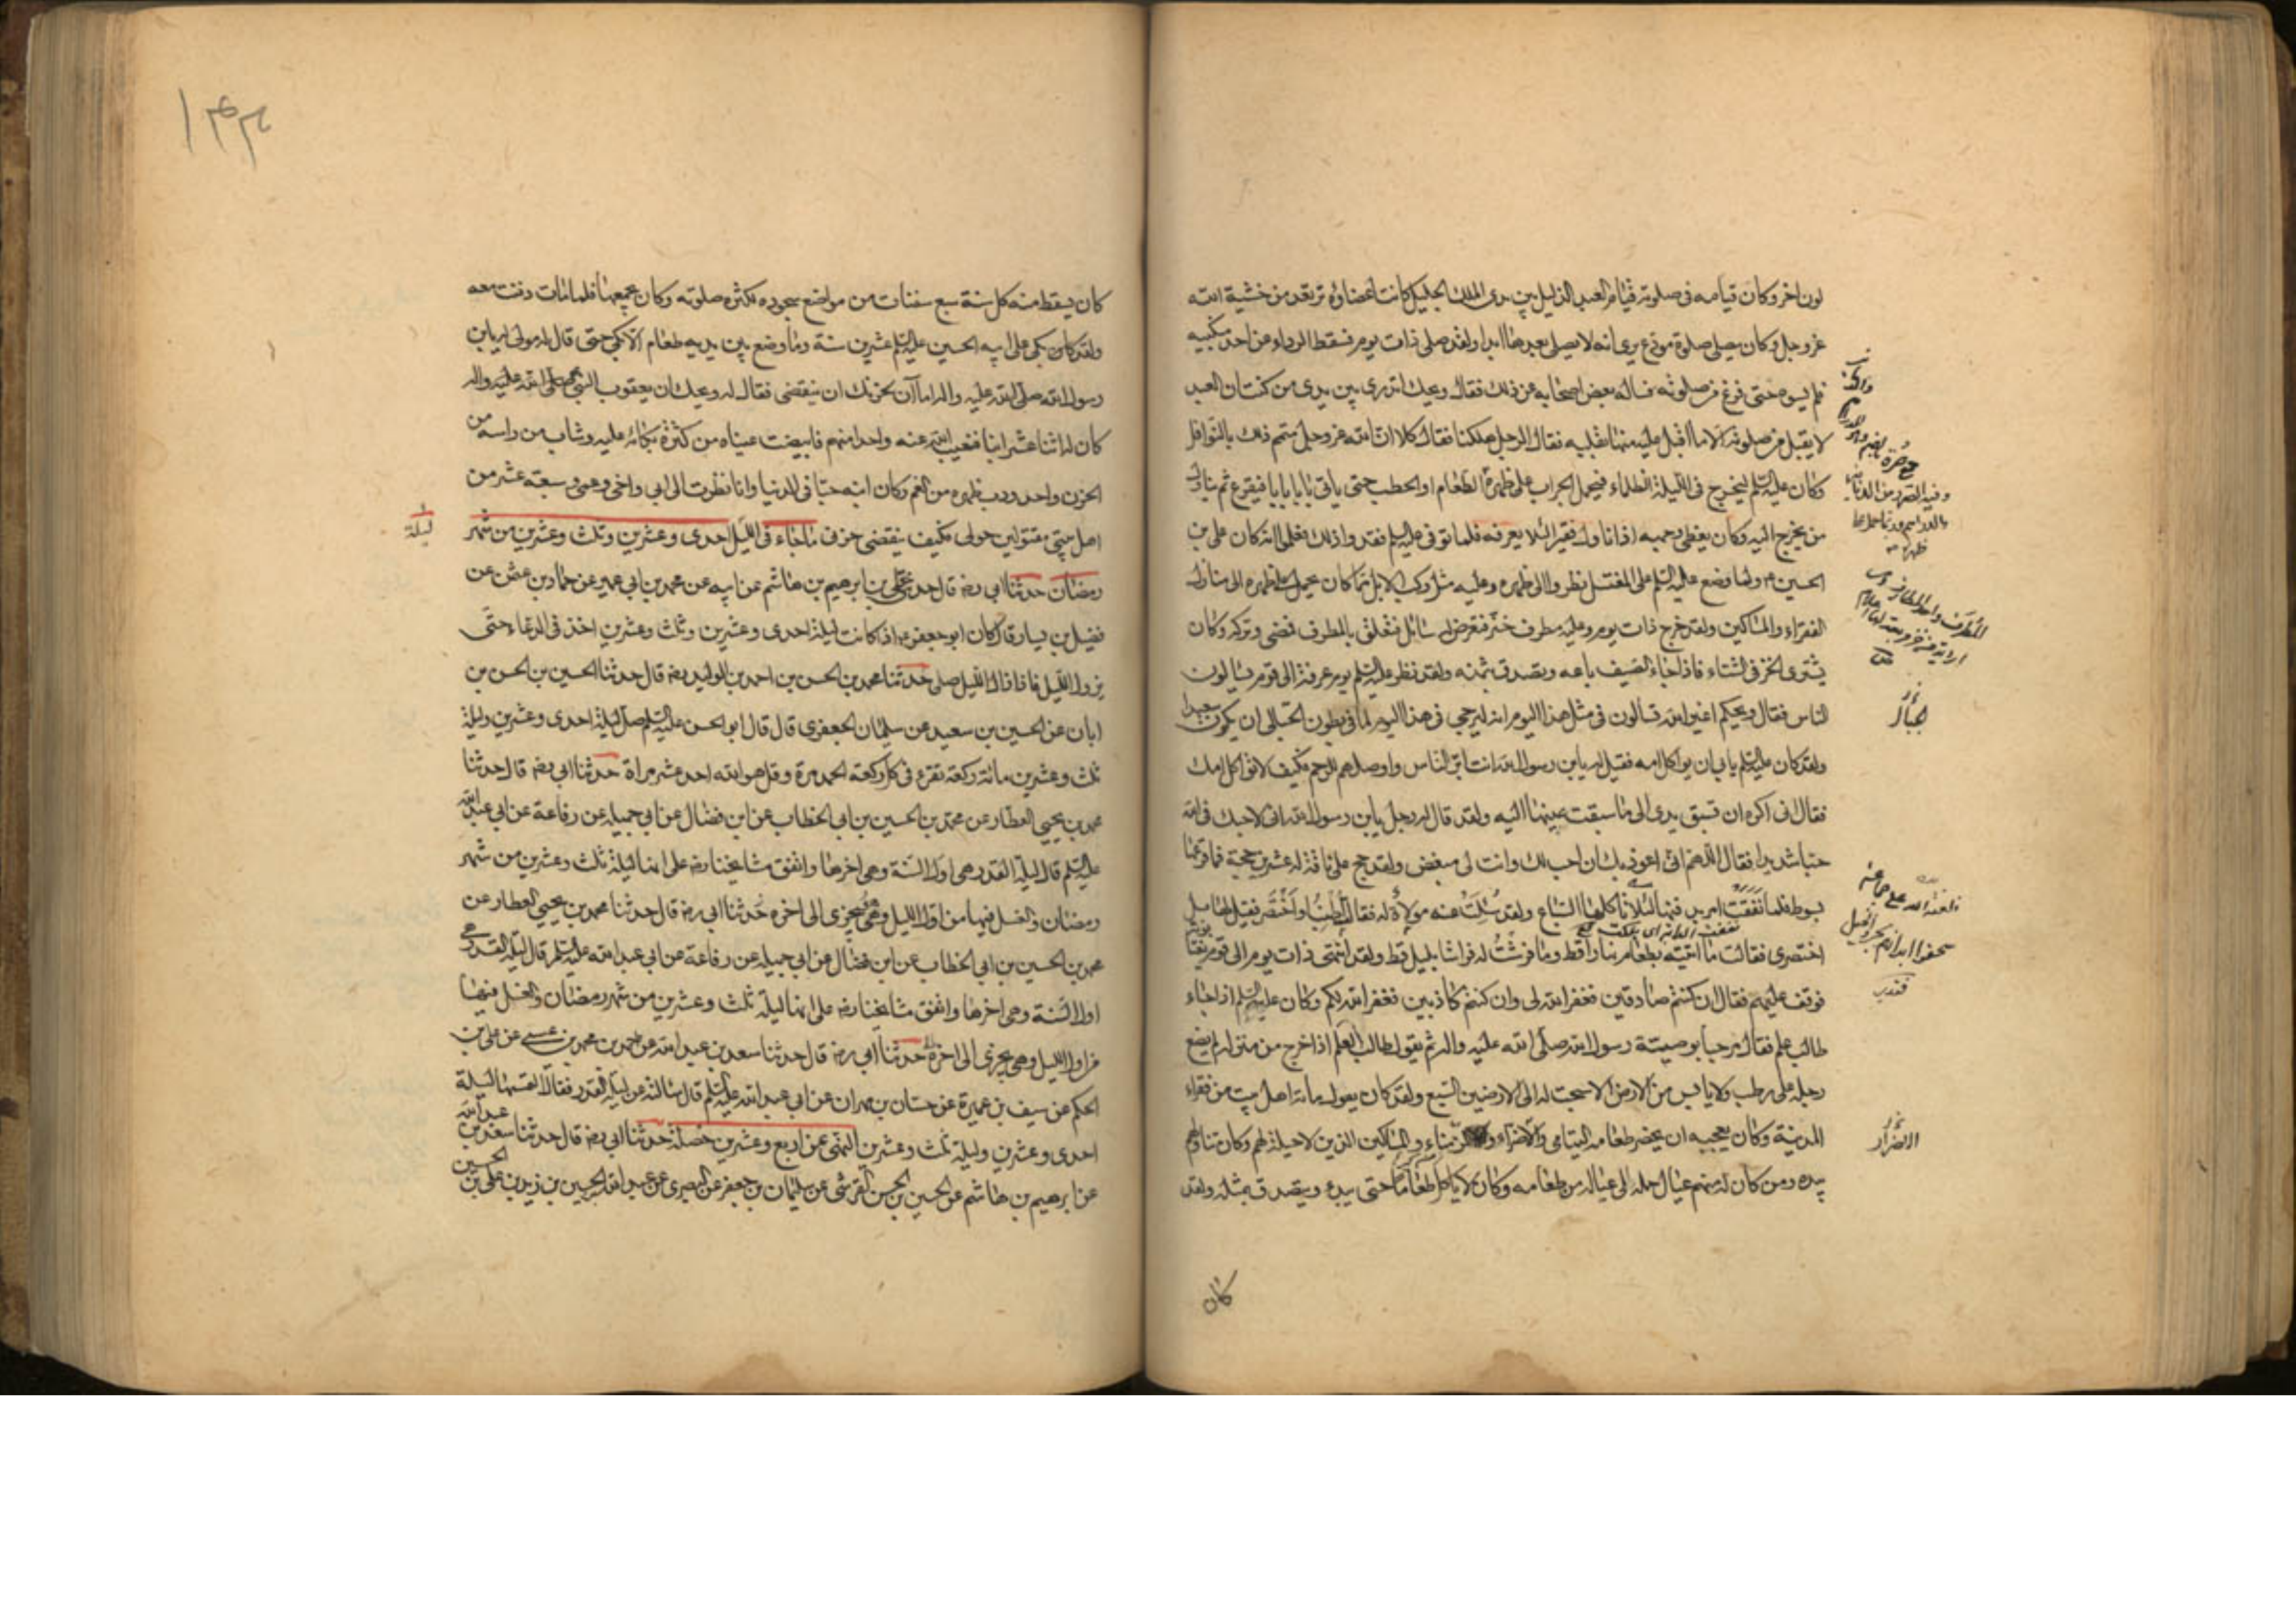 لون اخر وكان قيامه فى صلوته قيام العبد الذليل بين يدى الملك الجليل كانت اعضاؤه ترتعد من خشية الله
عز وجل وكان يصلى صلوة مودع يرى انه لا يصلى بعدها ابدا ولقد صلى ذات يوم فسقط الرداء عن احد منكبيه
فلم يسوه حتى فرغ من صلوته فساله بعض اصحابه عن ذلك فقال ويحك اتدرى بين يدى من كنت ان العبد
لا يقبل من صلوته الا ما اقبل عليه منها بقلبه فقال الرجل هلكنا فقال كلا ان الله عز وجل متمم ذلك بالنوافل
وكان عليه السلم ليخرج فى الليلة الظلماء فيحمل الجراب على ظهره الطعام او الحطب حتى ياتى بابا بابا فيقرع ثم يناول
من يخرج اليه وكان يغطى وجهه اذا ناول فقيرا لئلا يعرفه فلما توفى عليه السلم فقدوا ذلك فعلموا انه كان على بن
الحسين ع ولما وضع عليه السلم على المغتسل نظروا الى ظهره وعليه مثل ركب الابل مما كان يحمل على ظهره الى منازل
الفقراء والمساكين ولقد خرج ذات يوم وعليه مطرف خز فتعرض له سائل فتعلق بالمطرف فمضى وتركه وكان
يشترى الخز فى الشتاء فاذا جاء الصيف باعه وتصدق بثمنه ولقد نظر عليه السلم يوم عرفة الى قوم يسالون
الناس فقال ويحكم اغير الله تسالون فى مثل هذا اليوم انه ليرجى فى هذا اليوم لما فى بطون الحبالى ان يكون سعيدا
ولقد كان عليه السلم يابى ان يواكل امه فقيل له يابن رسول الله انت ابر الناس واوصلهم للرحم فكيف لا تواكل امك
فقال انى اكره ان تسبق يدى الى ما سبقت عينها اليه ولقد قال له رجل يابن رسول الله انى لاحبك فى الله
حبا شديدا فقال اللهم انى اعوذ بك ان احب لك وانت لى مبغض ولقد حج على ناقة له عشرين حجة فما قرعها
بسوط فلما نفقت امر بدفنها لئلا تاكلها السباع ولقد سئلت عنه مولاة له فقالت اطنب او اختصر فقيل لها بل
اختصرى فقالت ما اتيته بطعام نهارا قط وما فرشت له فراشا بليل قط ولقد انتهى ذات يوم الى قوم يغتابونه
فوقف عليهم فقال ان كنتم صادقين فغفر الله لى وان كنتم كاذبين فغفر الله لكم وكان عليه السلم اذا جاءه
طالب علم فقال مرحبا بوصية رسول الله صلى الله عليه واله ثم يقول طالب العلم اذا خرج من منزله لم يضع
رجله على رطب ولا يابس من الارض الا سبحت له الى الارضين السبع ولقد كان يعول مائة اهل بيت من فقراء
المدينة وكان يعجبه ان يحضر طعامه اليتامى والاضراء والزمناء والمساكين الذين لا حيلة لهم وكان يناولهم
بيده ومن كان له منهم عيال حمله الى عياله من طعامه وكان لا ياكل طعاما حتى يبدء ويتصدق بمثله ولقد
كان
جبار
الاضرار
١٤٣
كان يسقط منه كل سنة سبع ثفنات من مواضع سجوده لكثرة صلوته وكان يجمعها فلما مات دفنت معه
ولقد كان بكى على ابيه الحسين عليه السلم عشرين سنة وما وضع بين يديه طعام الا بكى حتى قال له مولى له يابن
رسول الله صلى الله عليه واله اما آن لحزنك ان ينقضى فقال له ويحك ان يعقوب النبى صلى الله عليه واله
كان له اثنا عشر ابنا فغيب الله عنه واحدا منهم فابيضت عيناه من كثرة بكائه عليه وشاب من راسه من
الحزن واحدودب ظهره من الغم وكان ابنه حيا فى الدنيا وانا نظرت الى ابى واخى وعمى وسبعة عشر من
اهل بيتى مقتولين حولى فكيف ينقضى حزنى ما جاء فى الليل احدى وعشرين وثلث وعشرين من شهر
ليلة
رمضان حدثنا ابى رضه قال حدثنى على بن ابرهيم بن هاشم عن ابيه عن محمد بن ابى عمير عن حماد بن عثمن عن
فضيل بن يسار قال كان ابو جعفر ع اذا كانت ليلة احدى وعشرين وثلث وعشرين اخذ فى الدعاء حتى
يزول الليل فاذا زال الليل صلى حدثنا محمد بن الحسن بن احمد بن الوليد رضه قال حدثنا الحسين بن الحسن بن
ابان عن الحسين بن سعيد عن سليمان الجعفرى قال قال ابو الحسن عليه السلم صل ليلة احدى وعشرين وليلة
ثلث وعشرين مائة ركعة تقرء فى كل ركعة الحمد مرة وقل هو الله احد عشر مراة حدثنا ابى رضه قال حدثنا
محمد بن يحيى العطار عن محمد بن الحسين بن ابى الخطاب عن ابن فضال عن ابى جميلة عن رفاعة عن ابى عبد الله
عليه السلم قال ليلة القدر هى اول السنة وهى اخرها واتفق مشايخنا رضه على انها ليلة ثلث وعشرين من شهر
رمضان والغسل فيها من اول الليل وهو يجزى الى اخره حدثنا ابى رضه قال حدثنا محمد بن يحيى العطار عن
محمد بن الحسين بن ابى الخطاب عن ابن فضال عن ابى جميلة عن رفاعة عن ابى عبد الله عليه السلم قال ليلة القدر هى
اول السنة وهى اخرها واتفق مشايخنا رضه على انها ليلة ثلث وعشرين من شهر رمضان والغسل فيها
من اول الليل وهى يجزى الى اخره حدثنا ابى رضه قال حدثنا سعد بن عبد الله عن احمد بن محمد بن عيسى عن على بن
الحكم عن سيف بن عميرة عن حسان بن مهران عن ابى عبد الله عليه السلم قال سالته عن ليلة القدر فقال التمسها ليلة
احدى وعشرين وليلة ثلث وعشرين النهى عن اربع وعشرين خصلة حدثنا ابى رضه قال حدثنا سعد بن عبد الله
عن ابرهيم بن هاشم عن الحسين بن الحسن القرشى عن سليمان بن جعفر عن البصرى عن عبد الله بن الحسين بن زيد بن على بن الحسين